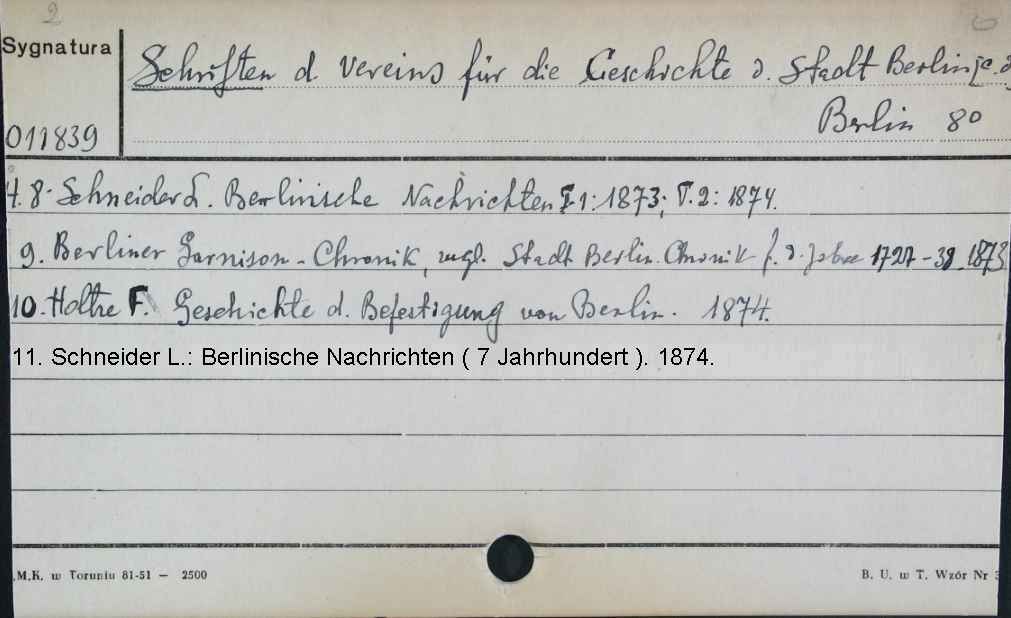 2
Sygnatura
Schriften d. Vereins für die Geschichte d. Stadt Berlin
Berlin 8°
011839
H. 8. Schneider L. Berlinische Nachrichten T. 1: 1873; T. 2: 1874.
9. Berliner Garnison-Chronik, zugl. Stadt Berlin. Chronik f. d. Jahre 1727-39. 1873
10. Holtze F. Geschichte d. Befestigung von Berlin. 1874.
11. Schneider L.: Berlinische Nachrichten ( 7 Jahrhundert ). 1874.
.M.K. w Toruniu 81-51 — 2500
B. U. w T. Wzór Nr